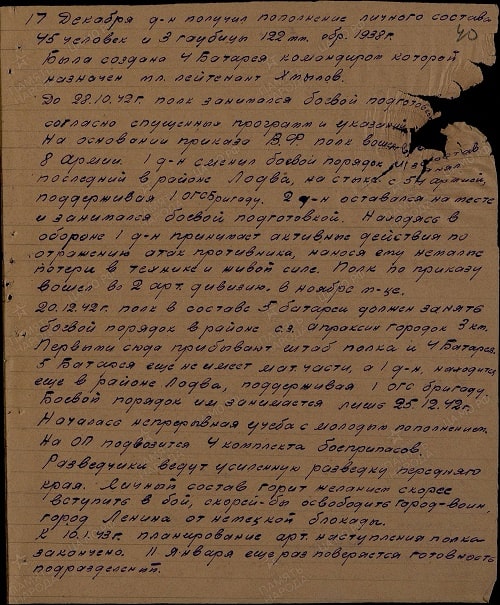 17 Декабря д-н получил пополнение личного состава
45 человек и 3 гаубицы 122 mm. обр. 1938г.
40
Была создана 4 Батарея командиром которой
назначен мл. лейтенант Хтылов.
До 28.10.42г. полк занимался боевой подготовкой
согласно спущенных программ и указаний
На основании приказа В.Ф. полк вошел в состав
8 армии. 1 д-н сменил боевой порядок занял
последний в районе Лодва, на стыке с 54 армией,
поддерживая 1 ОГСбригаду. 2 д-н оставался на месте
и занимался боевой подготовкой. Находясь в
обороне 1 д-н принимает активные действия по
отражению атак противника, нанося ему немалые
потери в технике и живой силе. Полк по приказу
вошел во 2 арт. дивизию. в ноябре м-це.
20.12.42г. полк в составе 5 батарей должен занять
боевой порядок в районе с.з. апраксин городок 3 км.
Первыми сюда прибывают штаб полка и 4 Батарея.
5 Батарея еще не имеет мат. части, а 1 д-н, находится
еще в районе Лодва, поддерживая 1 огс бригаду.
Боевой порядок им занимается лишь 25.12.42г.
Началась непрерывная учеба с молодым пополнением.
На ОП подвозится 4 комплекта боеприпасов.
Разведчики ведут усиленную разведку переднего
края. Личный состав горит желанием скорее
вступить в бой, скорей-бы освободить город-воин,
город Ленина от немецкой блокады.
К 10.1.43г. планирование арт. наступления полка
закончено. 11 Января еще раз поверяется готовность
подразделений.